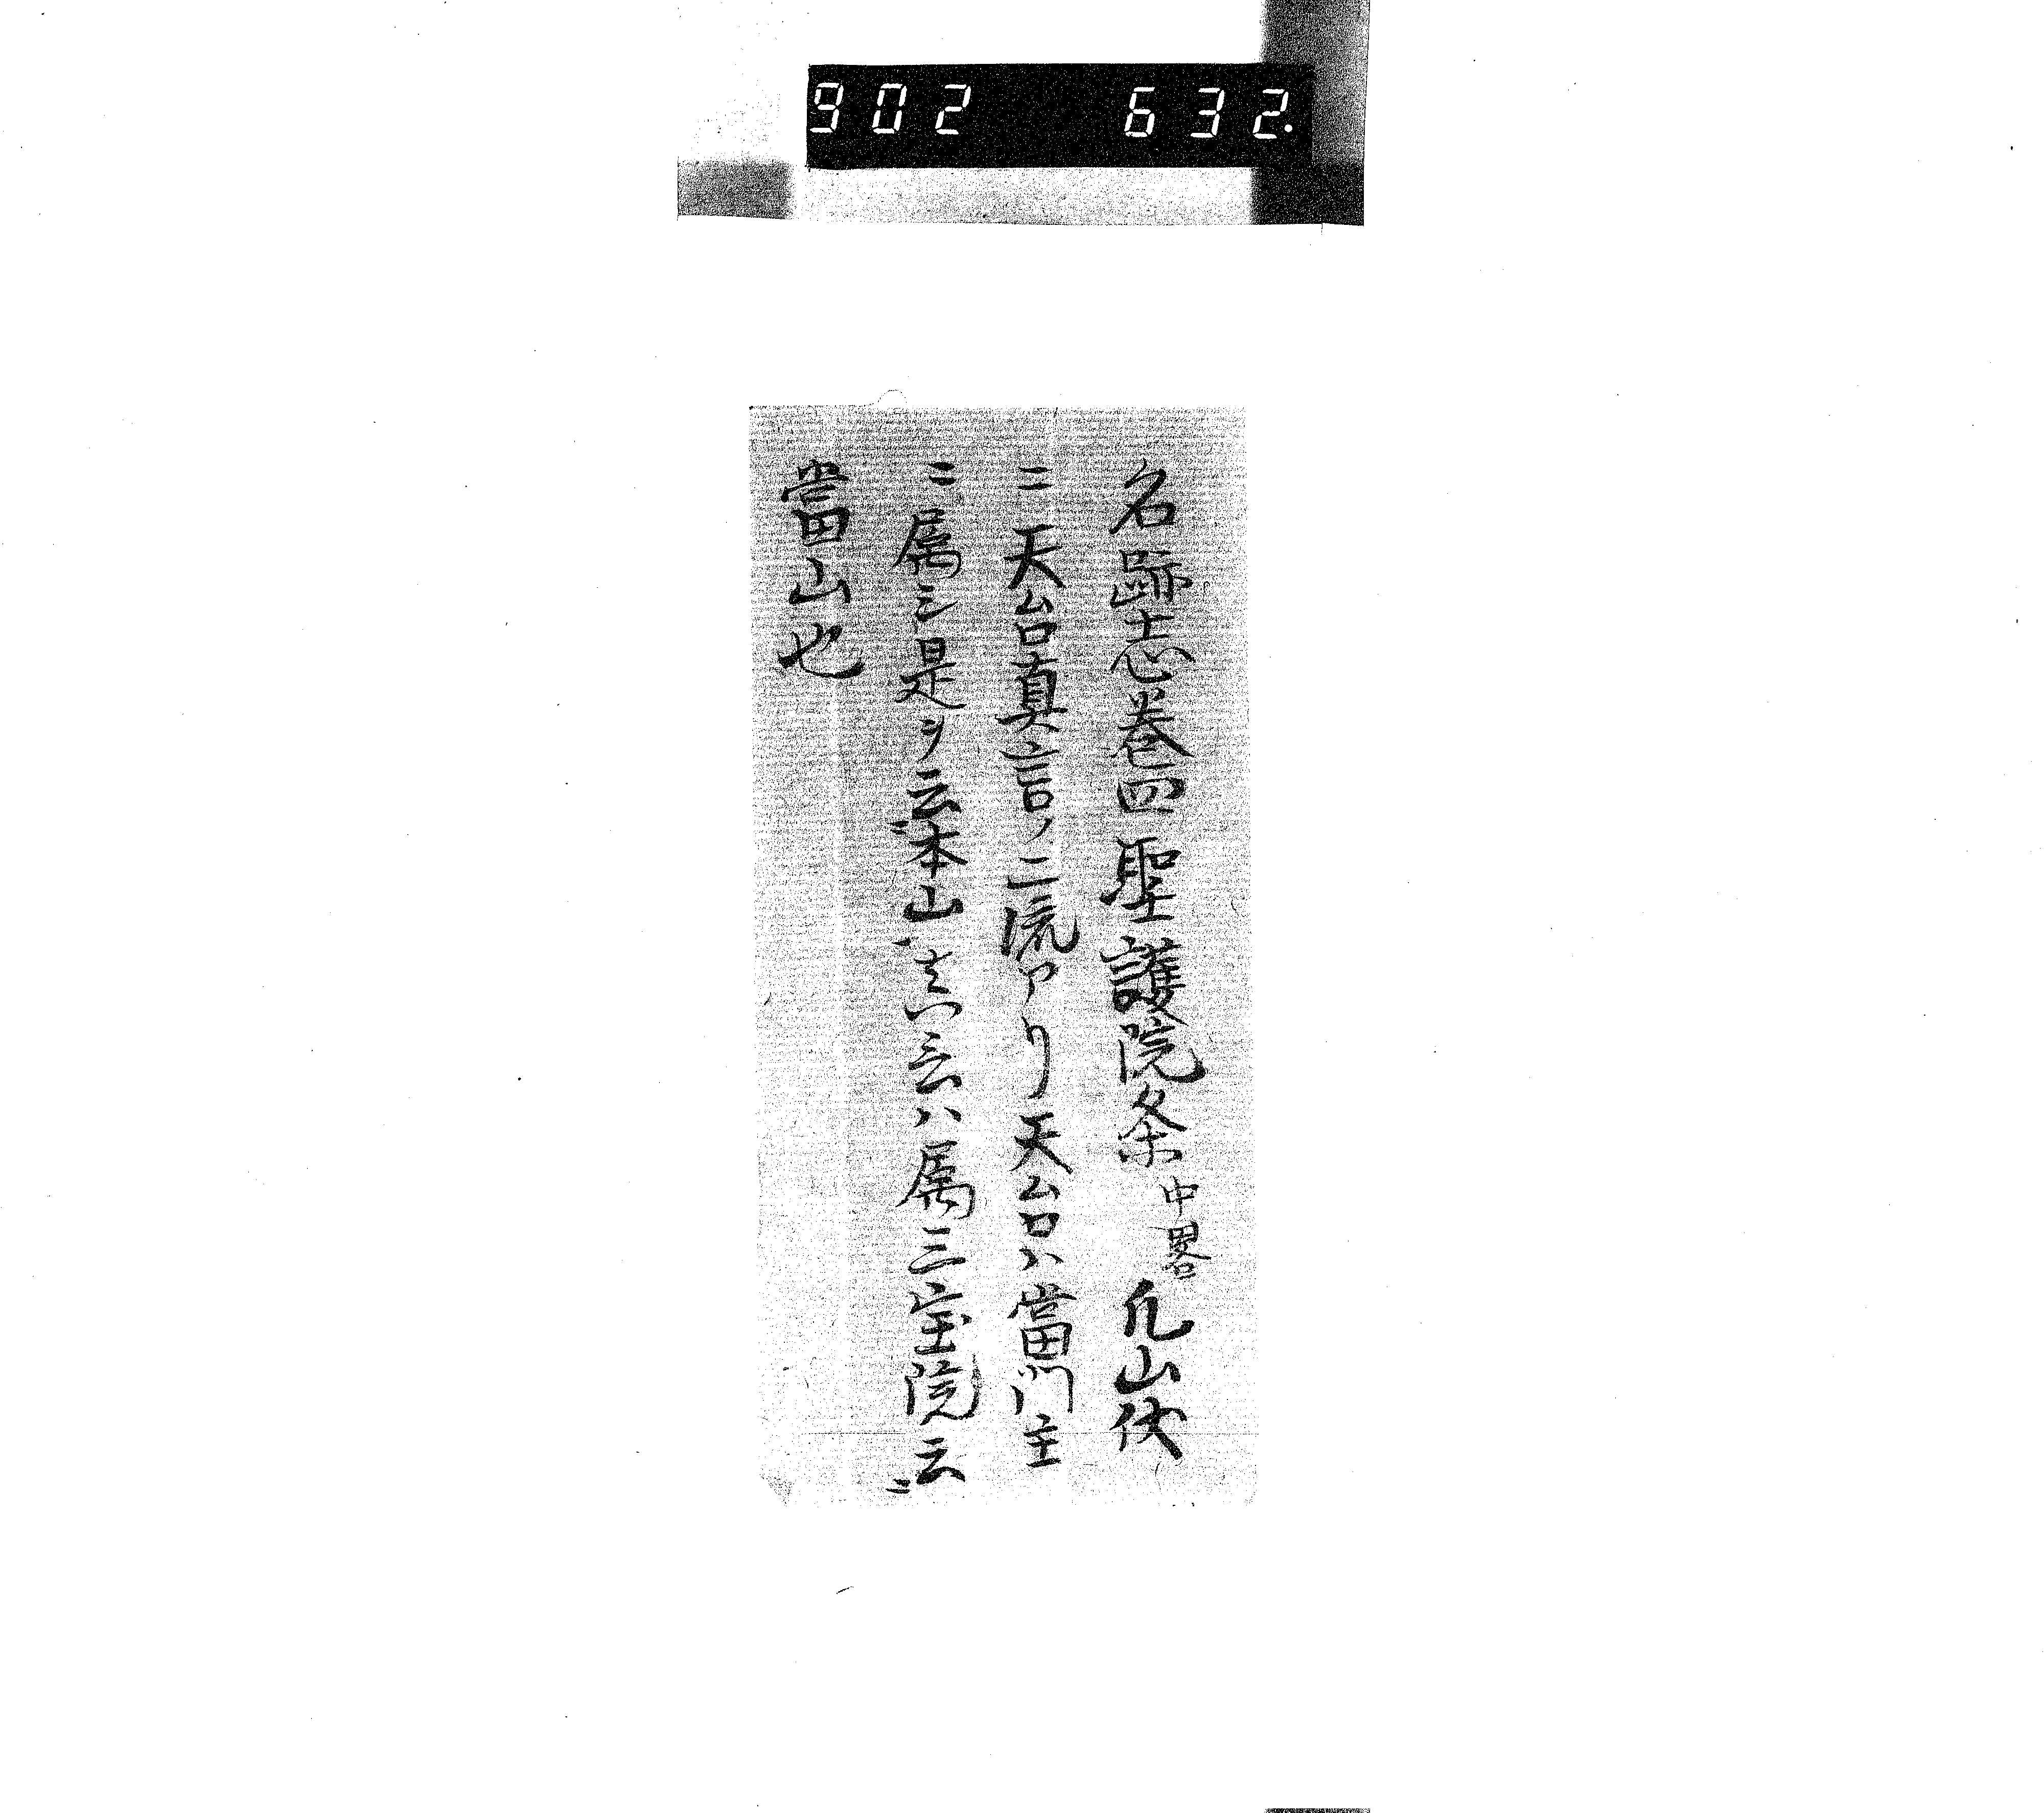 902 632.
名跡志巻四聖護院条中畧凡山伏
ニ天台真言ノ二流アリ天台ハ當門主
ニ属シ是ヲ云本山真言ハ属三宝院云
當山也